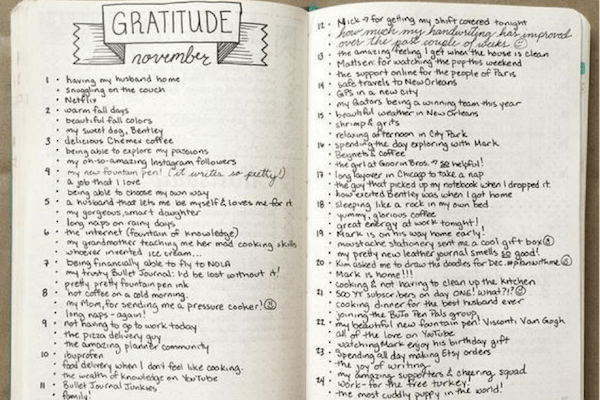 GRATITUDE
november
1 • having my husband home
• snuggling on the couch
• Netflix
2 • warm fall days
• beautiful fall colors
• my sweet dog, Bentley
3 • delicious Chemex coffee
• being able to explore my passions
• my oh-so-amazing Instagram followers
4 • my new fountain pen! (it writes so pretty!)
• a job that I love
• being able to choose my own way
5 • a husband that lets me be myself & loves me for it
• my gorgeous, smart daughter
• long naps on rainy days
6 • the internet (fountain of knowledge)
• my grandmother teaching me her mad cooking skills
• whoever invented ice cream...
7 • being financially able to fly to NOLA
• my trusty Bullet Journal: I'd be lost without it!
• pretty pretty fountain pen ink
8 • hot coffee on a cold morning.
• my Mom, for sending me a pressure cooker!
• long naps - again!
9 • not having to go to work today
• the pizza delivery guy
• the amazing planner community
10 • ibuprofen
• food delivery when I don't feel like cooking.
• the wealth of knowledge on YouTube
11 • Bullet Journal Junkies
• family!
12 • Mick → for getting my shift covered tonight
• how much my handwriting has improved
over the past couple of weeks
• the amazing feeling I get when the house is clean
13 • Mattsen: for watching the pup this weekend
• the support online for the people of Paris
14 • safe travels to New Orleans
• GPS in a new city
• my Gators being a winning team this year
15 • beautiful weather in New Orleans
• shrimp & grits
• relaxing afternoon in City Park
16 • spending the day exploring with Mark
• Beignets & coffee
• the girl at Goorin Bros. → so helpful!
17 • long layover in Chicago to take a nap
• the guy that picked up my notebook when I dropped it.
• how excited Bentley was when I got home
18 • sleeping like a rock in my own bed
• yummy, glorious coffee
• great energy at work tonight!
19 • Mark is on his way home early!
• moustache stationery sent me a cool gift box
• my pretty new leather journal smells so good!
20 • Kim asked me to draw the doodles for Dec. #planwithme
• Mark is home!!!
• cooking & not having to clean up the kitchen
21 • 500 YT subscribers on day ONE! what?!?
• cooking dinner for the best husband ever
• joining the BuJo Pen Pals group
22 • my beautiful new fountain pen! Visconti Van Gogh
• all of the love on YouTube
• watching Mark enjoy his birthday gift
23 • Spending all day making Etsy orders
• the joy of writing
• my amazing supporters & cheering squad
24 • Work - for the free turkey!
• the most cuddly puppy in the world!